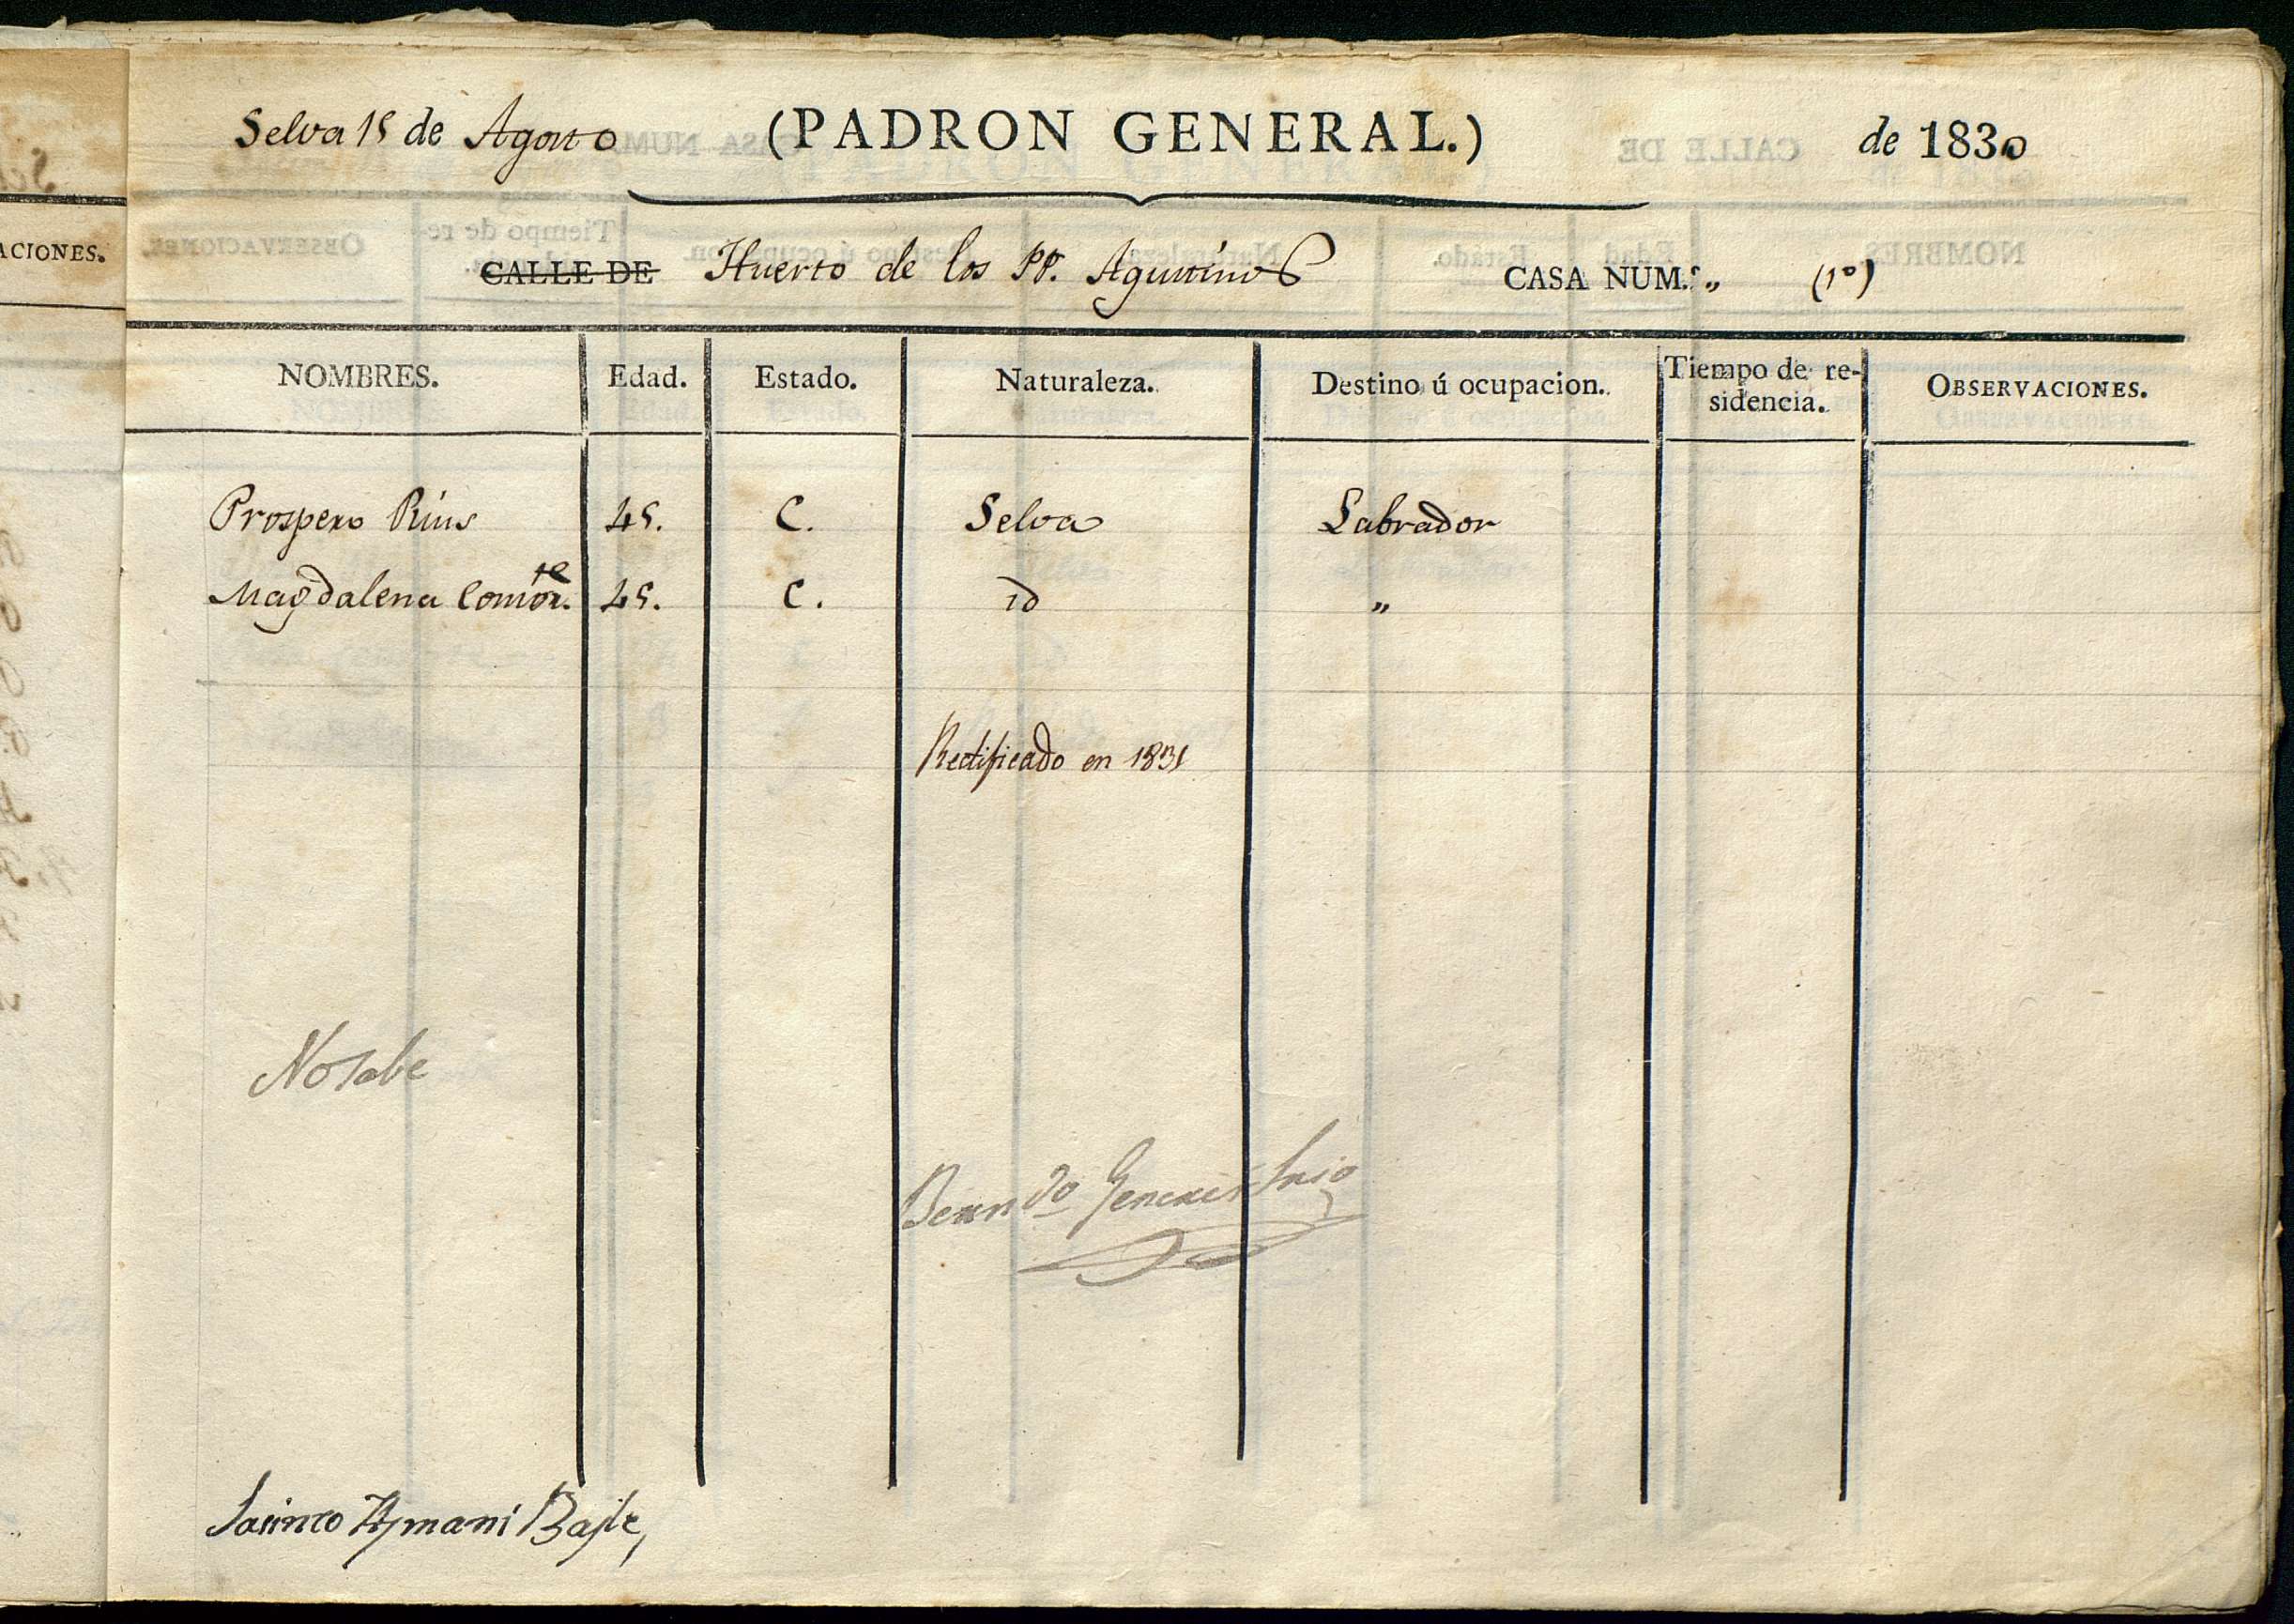 Selva 15 de Agosto (PADRON GENERAL.) de 1830
CALLE DE Huerto de los PP. Agustinos CASA NUM.º „ (1º)
ACIONES.
NOMBRES. Edad. Estado. Naturaleza. Destino ú ocupacion. Tiempo de re-
sidencia. OBSERVACIONES.
Prospero Rius 45. C. Selva Labrador
Magdalena 45. C. id „
Rectificado en 1831
No sabe
Berndo Srio
Jacinto Aymami Bayle,